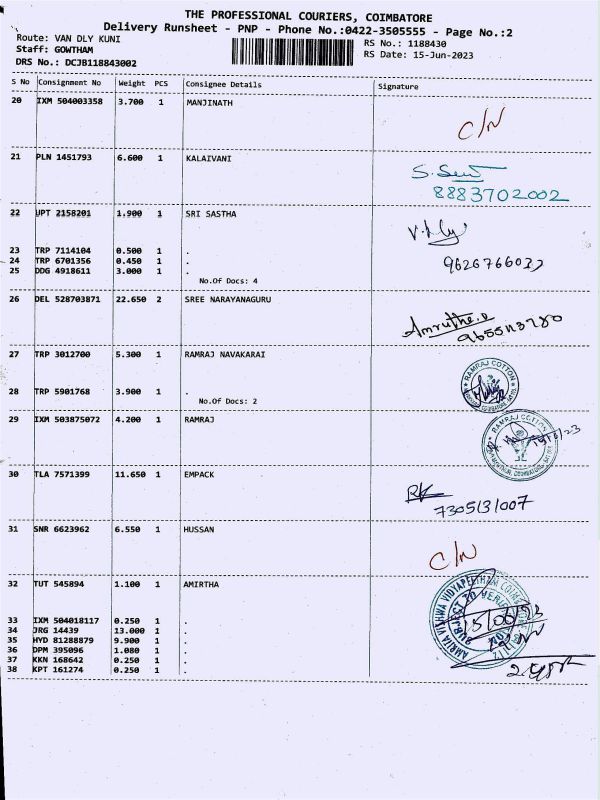 THE PROFESSIONAL COURIERS, COIMBATORE
Delivery Runsheet - PNP - Phone No.:0422-3505555 - Page No.:2
Route: VAN DLY KUNI RS No.: 1188430
Staff: GOWTHAM RS Date: 15-Jun-2023
DRS No.: DCJB118843002
S No Consignment No Weight PCS Consignee Details Signature
20 IXM 504003358 3.700 1 MANJINATH
C/N
21 PLN 1451793 6.600 1 KALAIVANI
8883702002
22 UPT 2158201 1.900 1 SRI SASTHA
23 TRP 7114104 0.500 1 .
24 TRP 6701356 0.450 1 .
25 DDG 4918611 3.000 1 .
No.Of Docs: 4
26 DEL 528703871 22.650 2 SREE NARAYANAGURU
27 TRP 3012700 5.300 1 RAMRAJ NAVAKARAI
RAMRAJ COTTON
28 TRP 5901768 3.900 1 .
No.Of Docs: 2
29 IXM 503875072 4.200 1 RAMRAJ
RAMRAJ COTTON
30 TLA 7571399 11.650 1 EMPACK
31 SNR 6623962 6.550 1 HUSSAN
C/N
32 TUT 545894 1.100 1 AMIRTHA
AMRITA VISHWA VIDYAPEETHAM
33 IXM 504018117 0.250 1 .
34 JRG 14439 13.000 1 .
35 HYD 81288879 9.900 1 .
36 DPM 395096 1.080 1 .
37 KKN 168642 0.250 1 .
38 KPT 161274 0.250 1 .